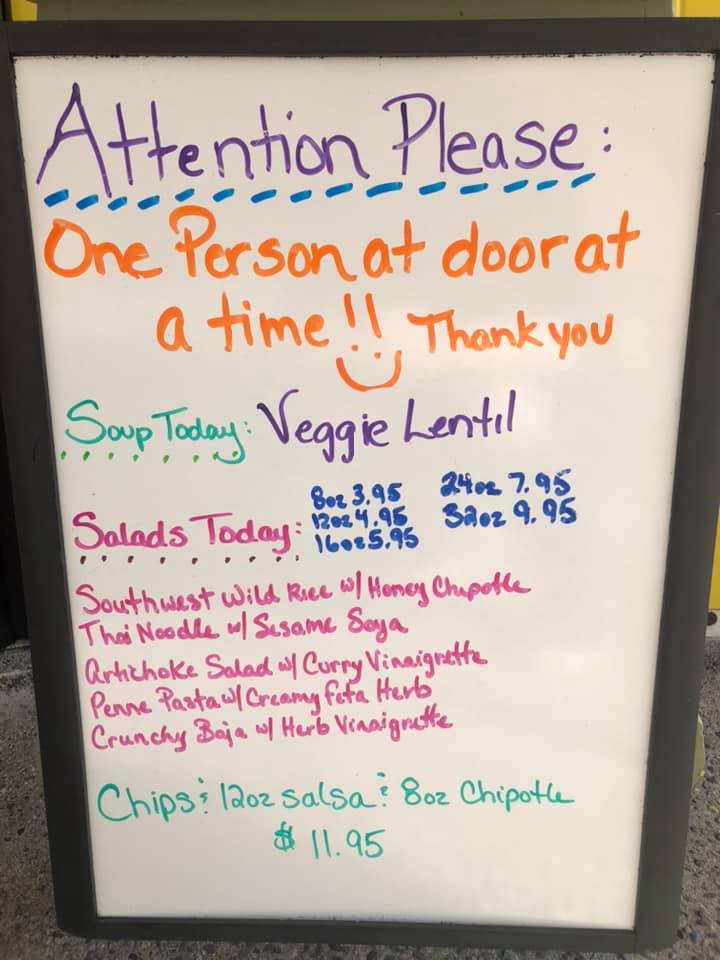 Attention Please:
One Person at door at
a time!! Thank you
Soup Today: Veggie Lentil
Salads Today:
8oz 3.95
12oz 4.95
16oz 5.95
24oz 7.95
32oz 9.95
Southwest Wild Rice w/ Honey Chipotle
Thai Noodle w/ Sesame Soya
Artichoke Salad w/ Curry Vinaigrette
Penne Pasta w/ Creamy Feta Herb
Crunchy Baja w/ Herb Vinaigrette
Chips & 12oz salsa & 8oz Chipotle
$ 11.95